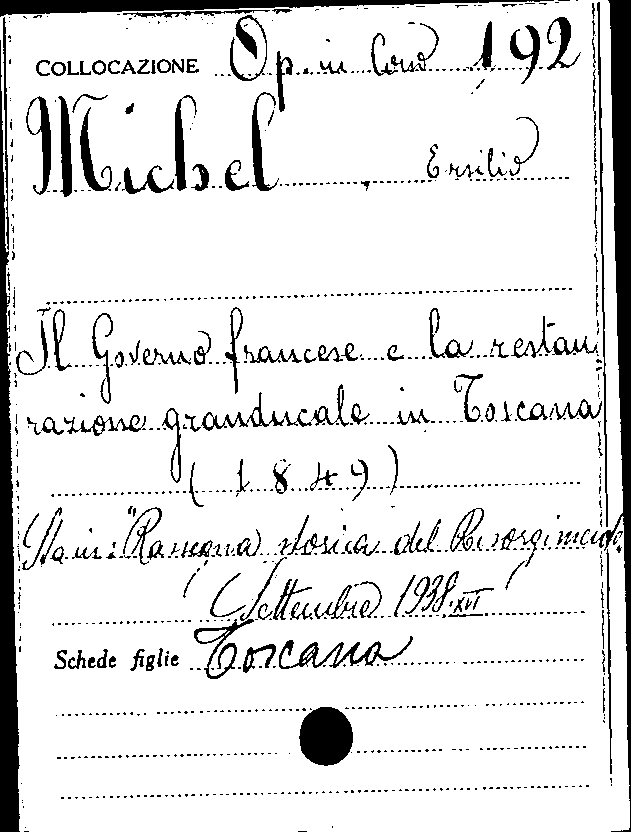 COLLOCAZIONE Op. in Corso 192
Michel, Ersilio
Il Governo francese e la restau
razione granducale in Toscana
(1849)
Sta in: "Rassegna storica del Risorgimento
(Settembre 1938.XVI)
Schede figlie Toscana